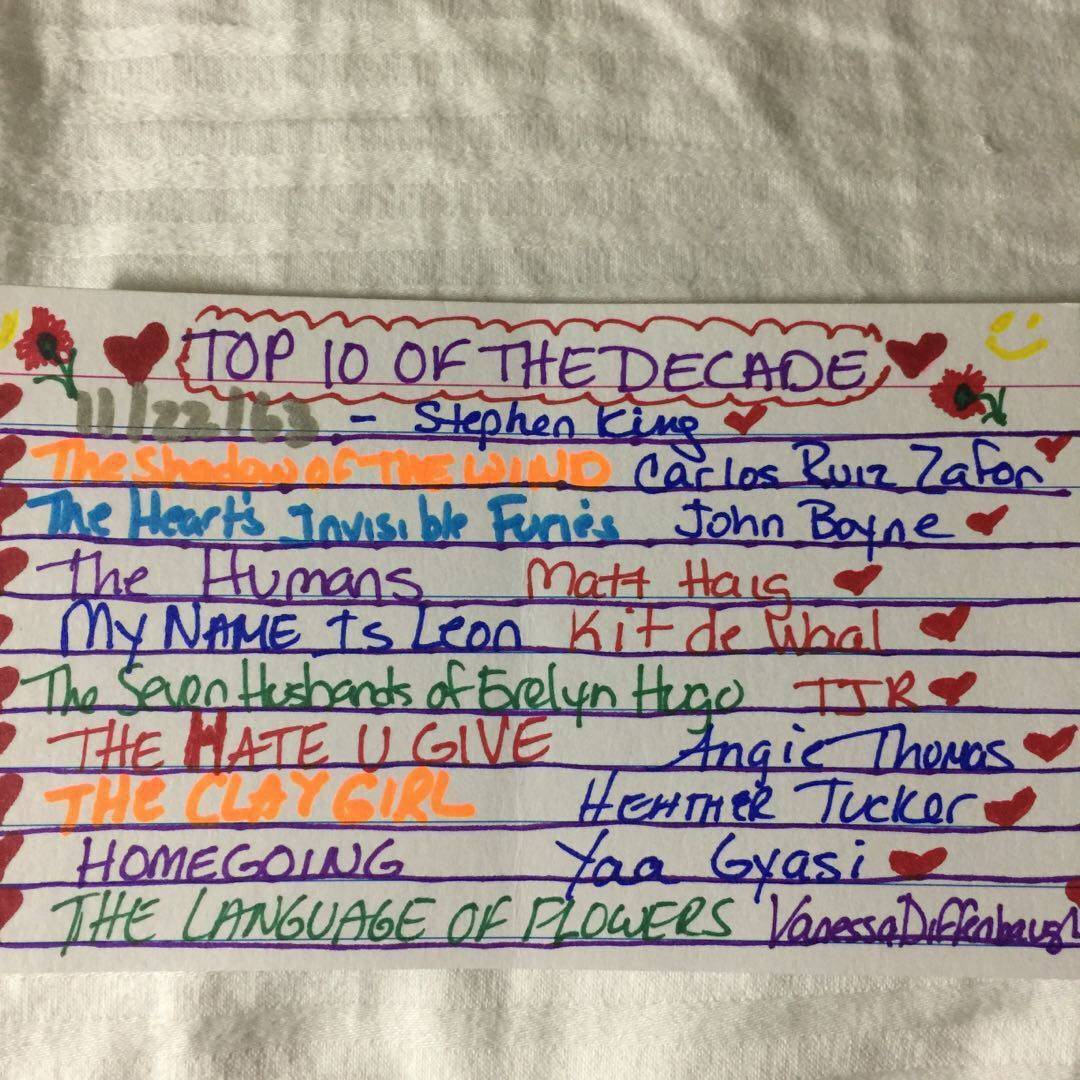 TOP 10 OF THE DECADE
11/22/63 - Stephen King
The Shadow of THE WIND Carlos Ruiz Zafon
The Heart's Invisible Furies John Boyne
The Humans Matt Haig
My NAME Is Leon Kit de Waal
The Seven Husbands of Evelyn Hugo TJR
THE HATE U GIVE Angie Thomas
THE CLAY GIRL HEATHER Tucker
HOMEGOING Yaa Gyasi
THE LANGUAGE OF FLOWERS Vanessa Diffenbaugh